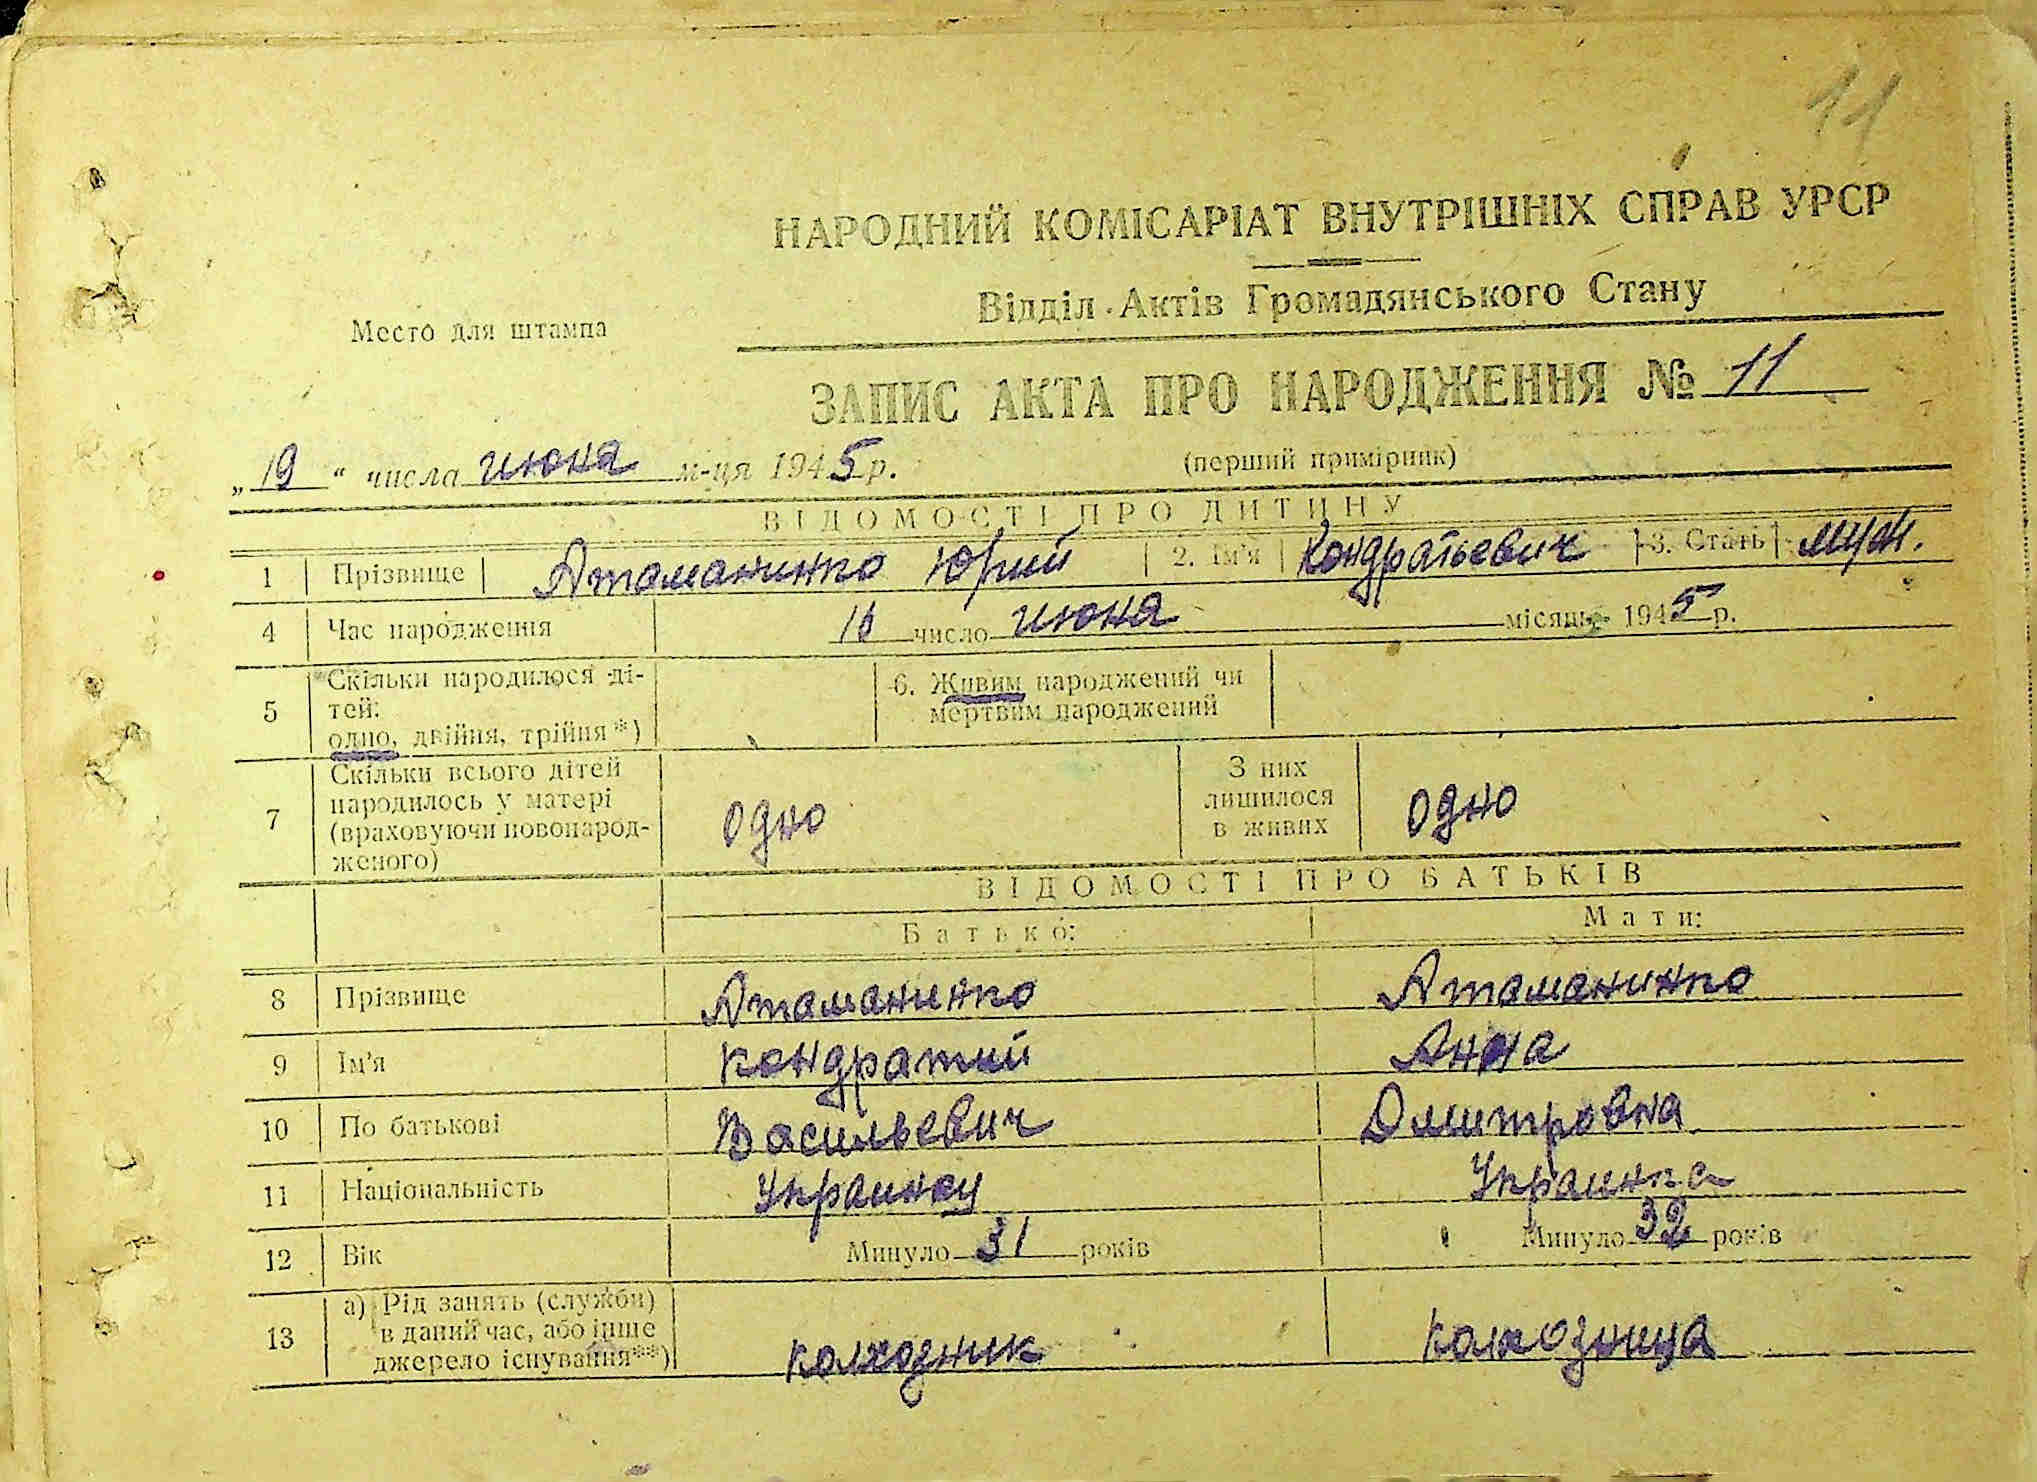 11
НАРОДНИЙ КОМІСАРІАТ ВНУТРІШНІХ СПРАВ УРСР
Відділ Актів Громадянського Стану
Место для штампа
ЗАПИС АКТА ПРО НАРОДЖЕННЯ № 11
„19“ числа июня м-ця 1945 р. (перший примірник)
ВІДОМОСТІ ПРО ДИТИНУ
1 Прізвище Атаманинко Юрий 2. Ім'я Кондратьевич 3. Стать муж.
4 Час народження число июня місяця 1945 р.
5 Скільки народилося ді-
тей:
одно, двійня, трійня*)
6. Живим народжений чи
мертвим народжений
7 Скільки всього дітей
народилось у матері
(враховуючи новонарод-
женого)
одно
З них
лишилося
в живих
одно
ВІДОМОСТІ ПРО БАТЬКІВ
Батько: Мати:
8 Прізвище Атаманинко Атаманинко
9 Ім'я Кондратий Анна
10 По батькові Васильевич Дмитровна
11 Національність Украинец Украинка
12 Вік Минуло 31 років Минуло 32 років
13 а) Рід занять (служби)
в даний час, або інше
джерело існування**)
колхозник колхозница